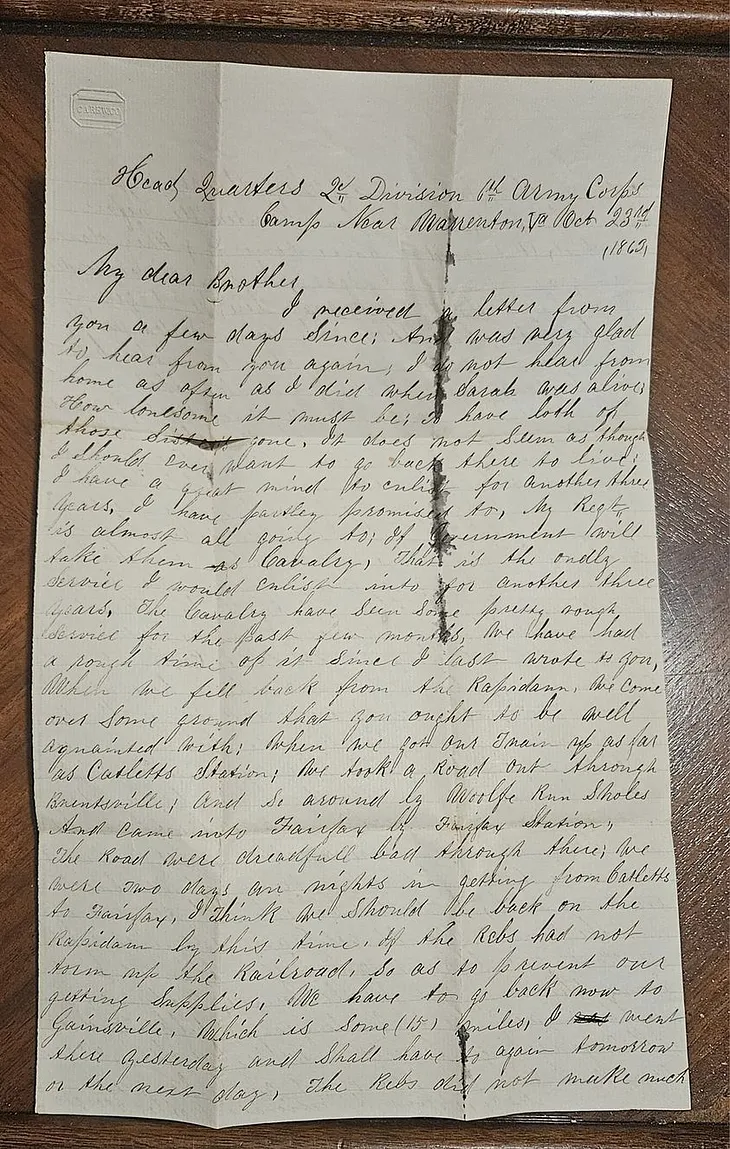 CAREW CO
Head Quarters 2d Division 6th Army Corps
Camp Near Warrenton, Va Oct 23rd
1863
My dear Brother
I received a letter from
you a few days Since; And was very glad
to hear from you again; I do not hear from
home as often as I did when Sarah was alive;
How lonesome it must be; to have both of
those Sisters gone, It does not Seem as though
I should ever want to go back there to live;
I have a great mind to enlist for another three
years, I have partley promised to, My Regt
is almost all going to; If Government will
take them as Cavalry, That is the ondly
Service I would enlist into for another three
years, The Cavalry have Seen Some pretty rough
Service for the past few months, We have had
a rough time of it Since I last wrote to you,
When we fell back from the Rapidann, We Come
over Some ground that you ought to be well
aquainted with; When we got our Train up as far
as Catletts Station; We took a Road out through
Brentsville; And So around by Woolfe Run Sholes
And Came into Fairfax by Fairfax Station;
The Road were dreadfull bad through there; We
were Two days an nights in getting from Catletts
to Fairfax, I Think we Should be back on the
Rapidann by this time, If the Rebs had not
torn up the Railroad, So as to prevent our
getting Supplies, We have to go back now to
Gainsville, Which is Some (15) miles, I went
there yesterday and Shall have to again tomorrow
or the next day, The Rebs did not make much